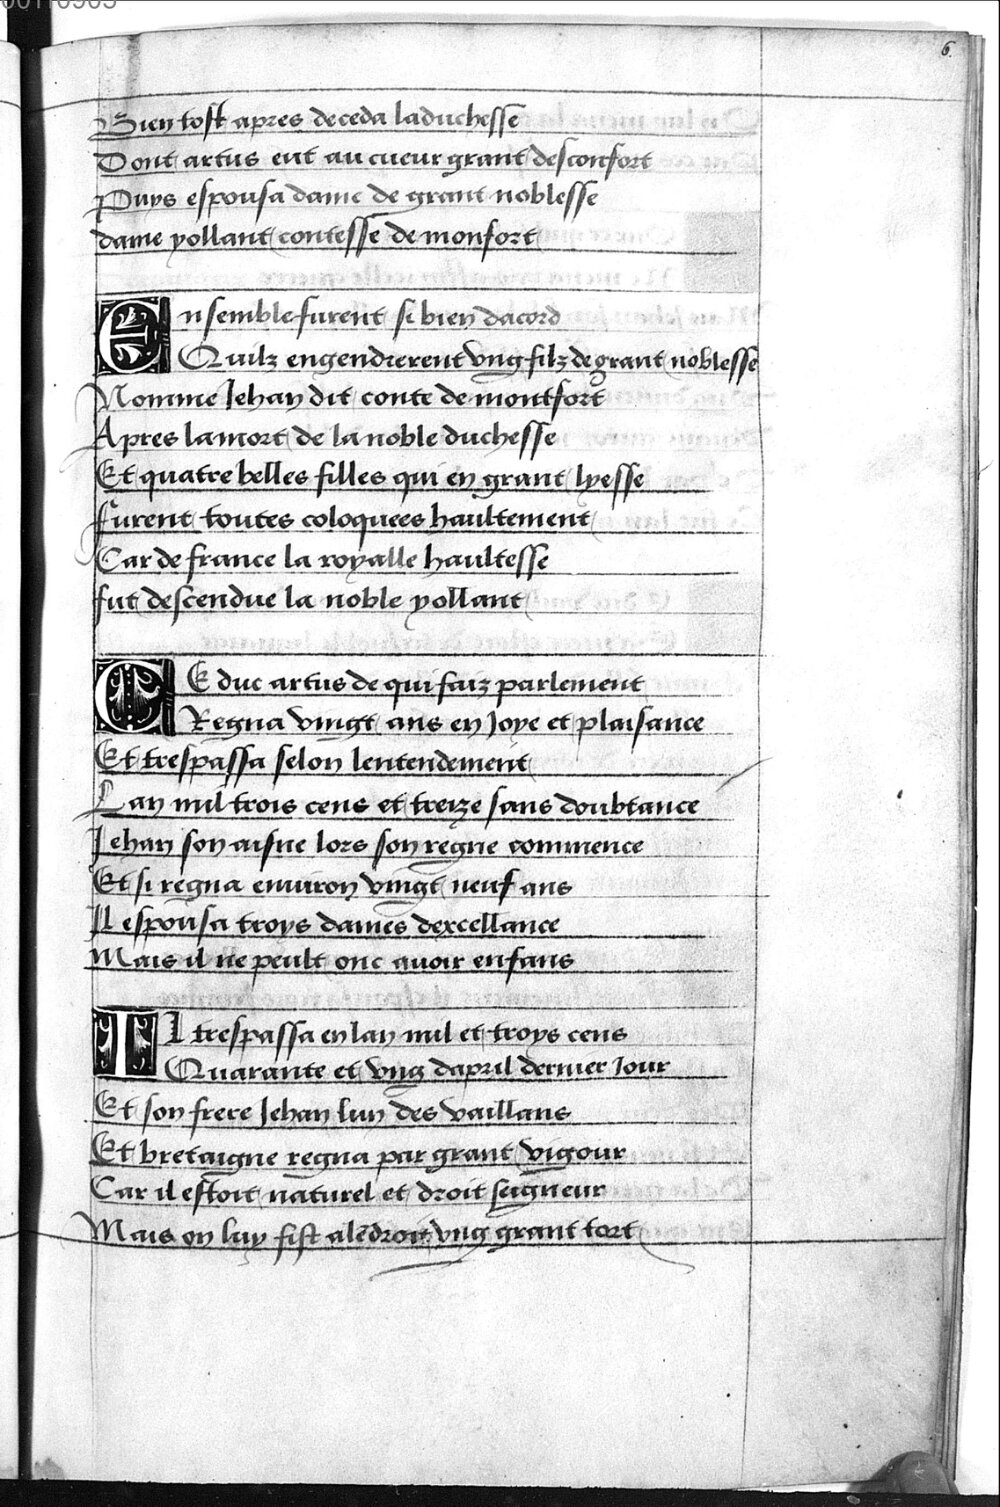 6
Bien tost apres deceda la duchesse
Dont artus eut au cueur grant desconfort
Puys espousa dame de grant noblesse
dame yollant contesse de monfort
En semble furent si bien dacord
Quilz engendrerent vng filz de grant noblesse
Nomme Jehan dit conte de montfort
Apres la mort de la noble duchesse
Et quatre belles filles qui en grant lyesse
furent toutes coloquees haultement
Car de france la royalle haultesse
fut descendue la noble yollant
CE duc artus de qui faiz parlement
Regna vingt ans en Joye et plaisance
Et trespassa selon lentendement
Lan mil trois cens et treize sans doubtance
Jehan son aisne lors son regne commence
Et si regna enuiron vingt neuf ans
Il espousa troys dames dexcellance
Mais il ne peult onc auoir enfans
IL trespassa en lan mil et troys cens
Quarante et vng dapril dernier Jour
Et son frere Jehan lun des vaillans
Et bretaigne regna par grant vigour
Car il estoit naturel et droit seigneur
Mais on luy fist alēdroit vng grant tort